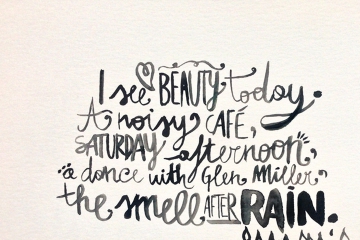 I see BEAUTY today.
A noisy CAFÉ,
SATURDAY afternoon,
a dance with Glen Miller,
the smell AFTER RAIN.